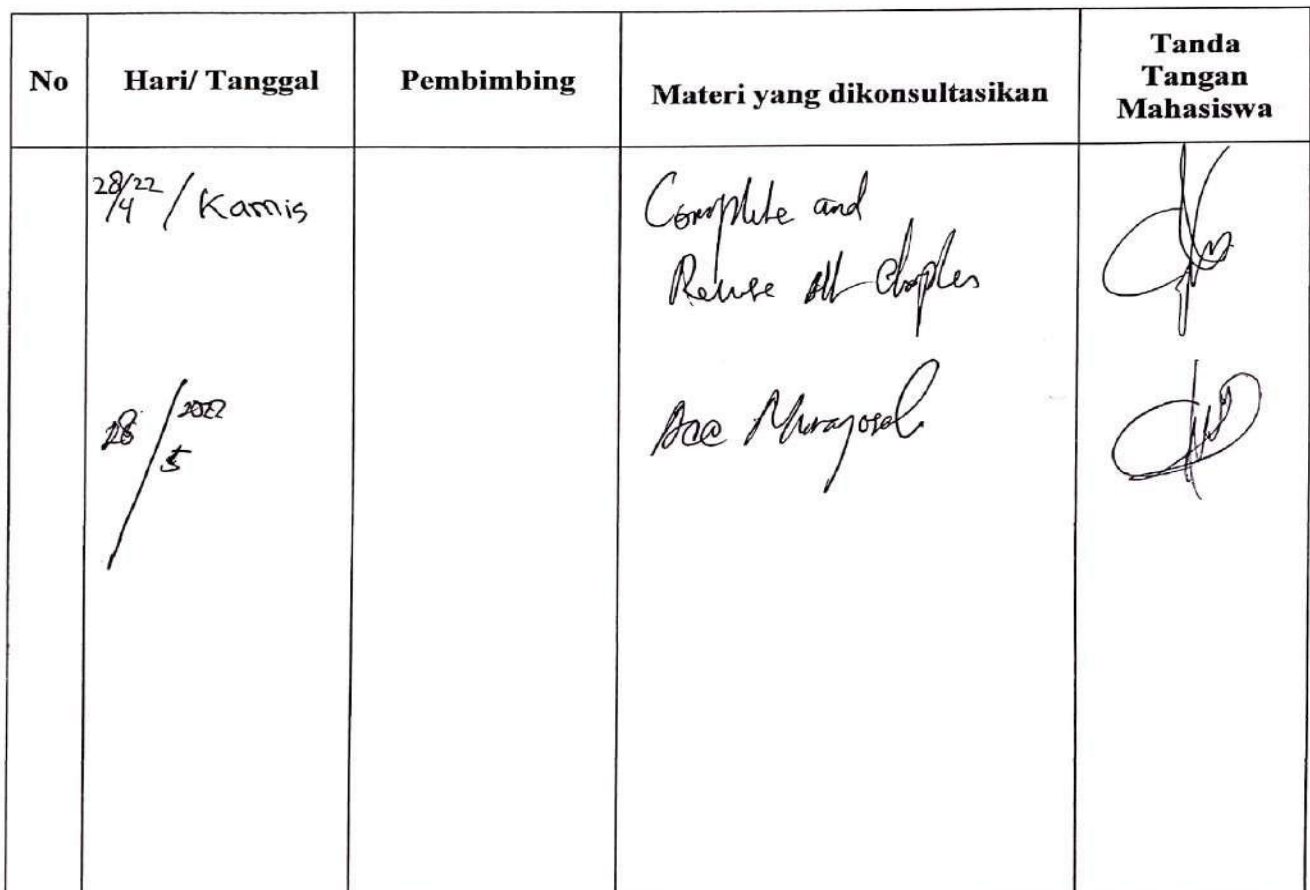 No
Hari/ Tanggal
Pembimbing
Materi yang dikonsultasikan
Tanda
Tangan
Mahasiswa
28/4 22 / Kamis
Complete and
Revise all Chapters
28/5 2022
Acc Munaqosah